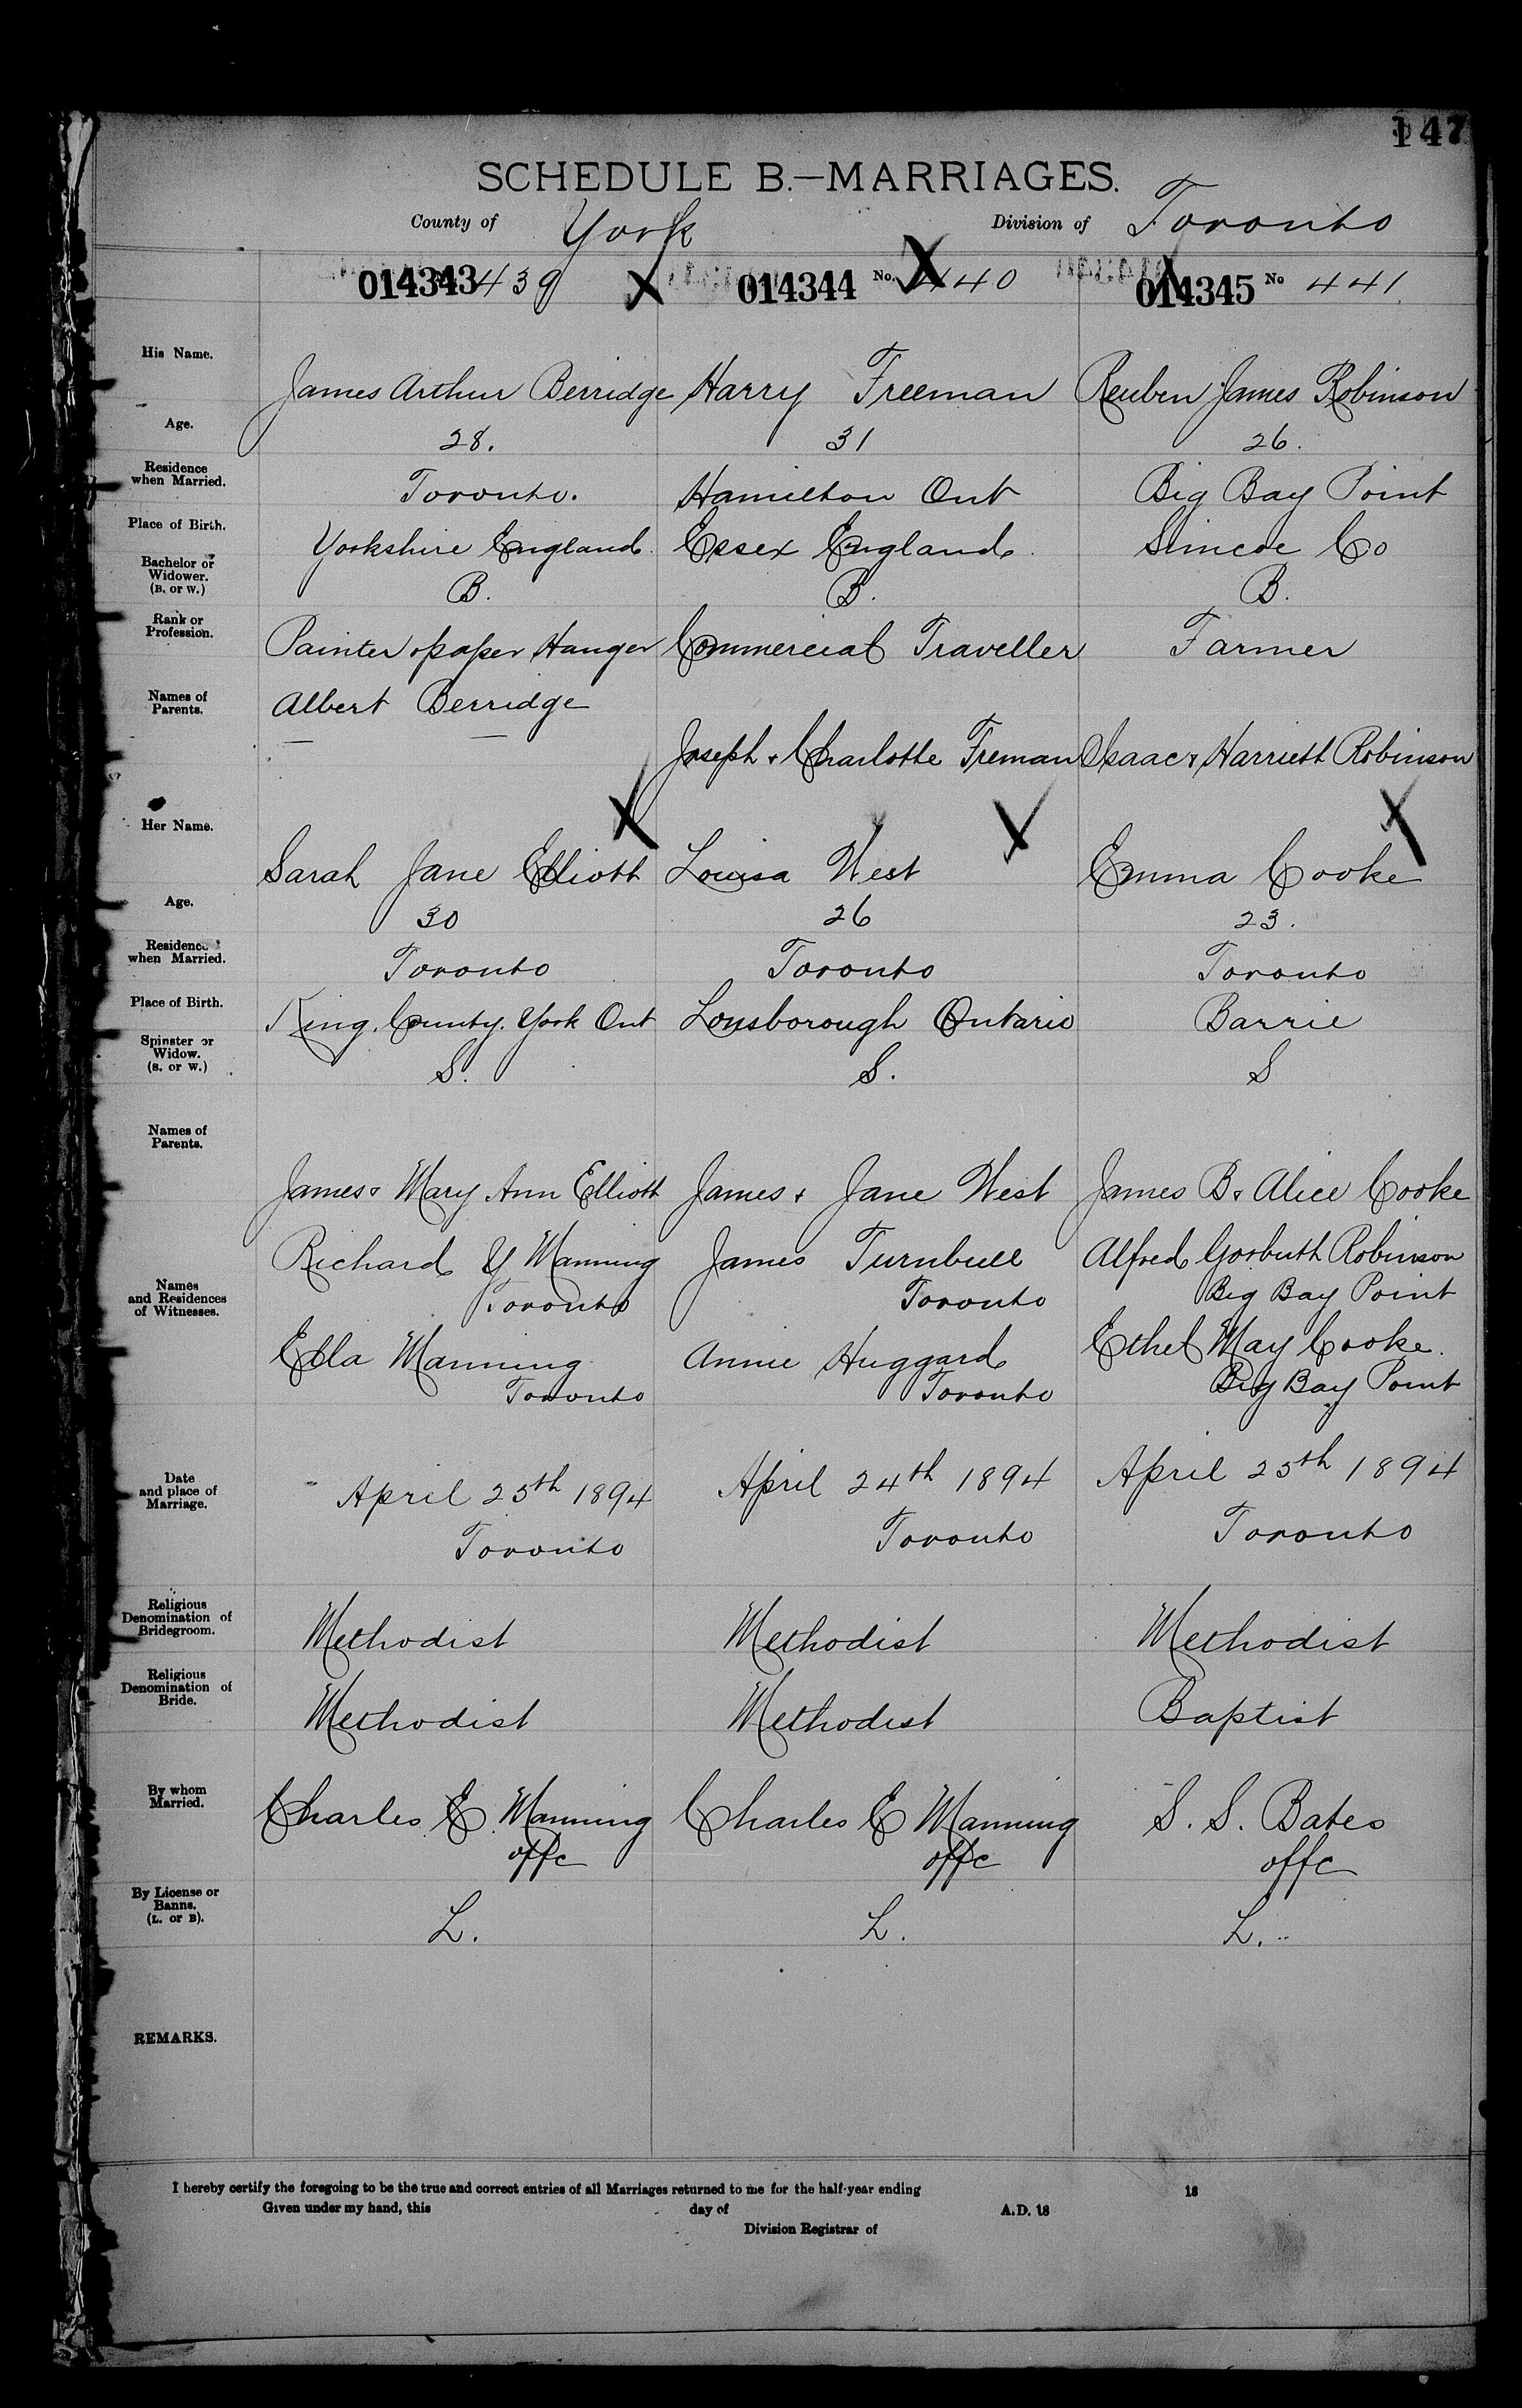 147
SCHEDULE B.—MARRIAGES.
County of York Division of Toronto
014343 439 014344 No. 440 014345 No 441
His Name. James Arthur Berridge Harry Freeman Reuben James Robinson
Age. 28. 31 26.
Residence when Married. Toronto. Hamilton Ont Big Bay Point
Place of Birth. Yorkshire England. Essex England. Simcoe Co
Bachelor or Widower. (B. or W.) B. B. B.
Rank or Profession. Painter & paper Hanger Commercial Traveller Farmer
Names of Parents. Albert Berridge
Joseph & Charlotte Freman Isaac & Harriett Robinson
Her Name. Sarah Jane Elliott Louisa West Emma Cooke
Age. 30 26 23.
Residence when Married. Toronto Toronto Toronto
Place of Birth. King. County. York Ont Lonsborough Ontario Barrie
Spinster or Widow. (S. or W.) S. S. S
Names of Parents.
James & Mary Ann Elliott James & Jane West James B & Alice Cooke
Names and Residences of Witnesses.
Richard Y Manning James Turnbull Alfred Robinson
Toronto Toronto Big Bay Point
Ella Manning Annie Huggard Ethel May Cooke.
Toronto Toronto Big Bay Point
Date and place of Marriage. April 25th 1894 April 24th 1894 April 25th 1894
Toronto Toronto Toronto
Religious Denomination of Bridegroom. Methodist Methodist Methodist
Religious Denomination of Bride. Methodist Methodist Baptist
By whom Married. Charles E. Manning Charles E Manning S. S. Bates
offc offc offc
By License or Banns. (L. or B). L. L. L.
REMARKS.
I hereby certify the foregoing to be the true and correct entries of all Marriages returned to me for the half-year ending 18
Given under my hand, this day of A.D. 18
Division Registrar of